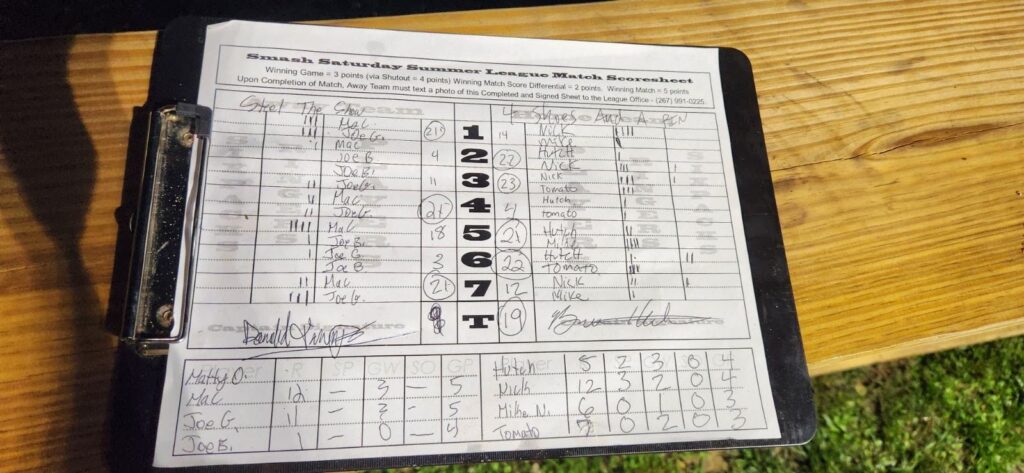 Smash Saturday Summer League Match Scoresheet
Winning Game = 3 points (via Shutout = 4 points) Winning Match Score Differential = 2 points. Winning Match = 5 points
Upon Completion of Match, Away Team must text a photo of this Completed and Signed Sheet to the League Office - (267) 991-0225.
Steel The Show 4 Shoes And A PIN
Mac Nick
Joe G. 21 1 14 Mike
Mac Hutch
Joe B 4 2 22 Nick
Joe B. Nick
Joe G. 11 3 23 Tomato
Mac Hutch
Joe G. 21 4 4 Tomato
Mac Hutch
Joe B. 18 5 21 Mike
Joe G Hutch
Joe B 3 6 22 Tomato
Mac Nick
Joe G. 21 7 12 Mike
T 19
R SP GW SO GP
Matty O. Hutch 5 2 3 0 4
Mac 12 — 3 — 5 Nick 12 3 2 0 4
Joe G. 11 — 3 — 5 Mike N. 6 0 1 0 3
Joe B. 1 — 0 — 4 Tomato 7 0 2 0 3